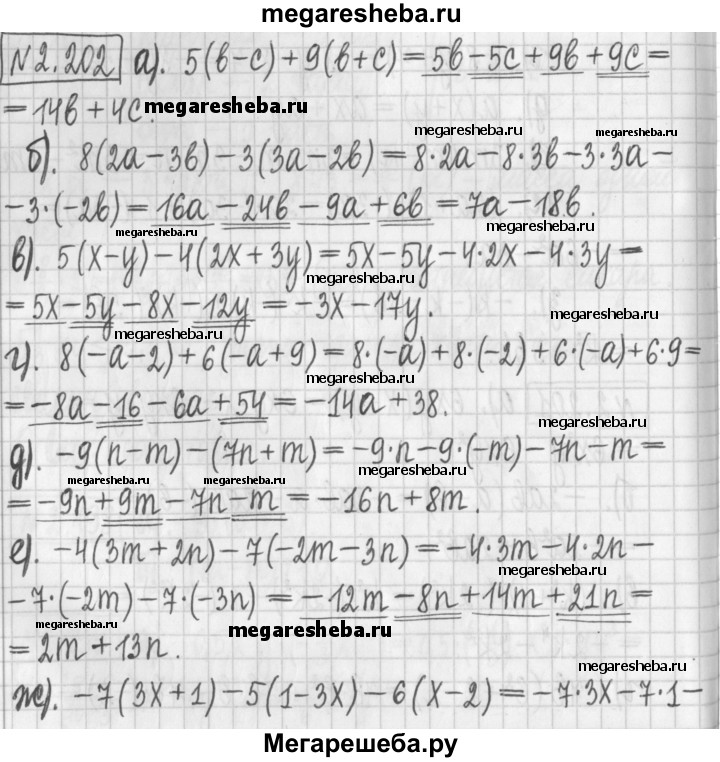 megaresheba.ru
N2.202 а). 5(в-с)+9(в+с)=5в-5с+9в+9с=
=14в+4с. megaresheba.ru megaresheba.ru megaresheba.ru
б). 8(2а-3в)-3(3а-2в)=8·2а-8·3в-3·3а-
-3·(-2в)=16а-24в-9а+6в=7а-18в.
megaresheba.ru megaresheba.ru
в). 5(х-у)-4(2х+3у)=5х-5у-4·2х-4·3у=
megaresheba.ru
=5х-5у-8х-12у=-3х-17у.
megaresheba.ru megaresheba.ru
г). 8(-а-2)+6(-а+9)=8·(-а)+8·(-2)+6·(-а)+6·9=
megaresheba.ru
=-8а-16-6а+54=-14а+38.
megaresheba.ru
д). -9(n-m)-(7n+m)=-9·n-9·(-m)-7n-m=
megaresheba.ru megaresheba.ru megaresheba.ru
=-9n+9m-7n-m=-16n+8m.
е). -4(3m+2n)-7(-2m-3n)=-4·3m-4·2n-
megaresheba.ru
-7·(-2m)-7·(-3n)=-12m-8n+14m+21n=
megaresheba.ru megaresheba.ru
=2m+13n.
megaresheba.ru
ж). -7(3х+1)-5(1-3х)-6(х-2)=-7·3х-7·1-
Мегарешеба.ру